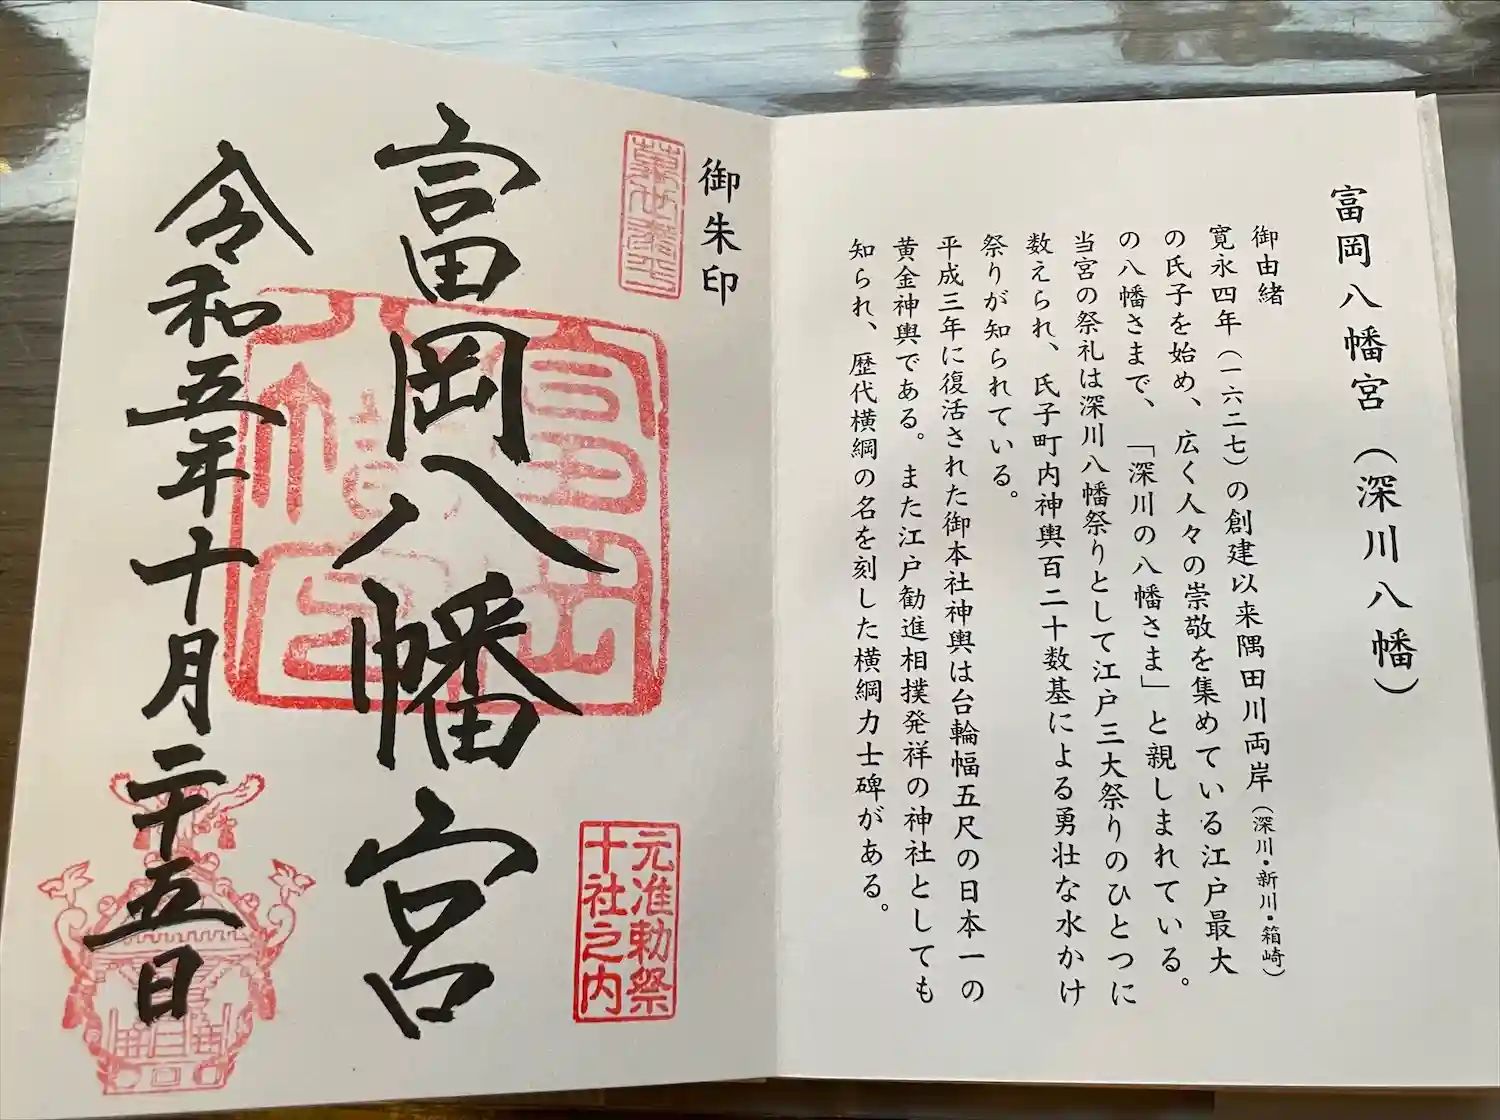 富岡八幡宮（深川八幡）
御由緒
寛永四年（一六二七）の創建以来隅田川両岸（深川・新川・箱崎）
の氏子を始め、広く人々の崇敬を集めている江戸最大
の八幡さまで、「深川の八幡さま」と親しまれている。
当宮の祭礼は深川八幡祭りとして江戸三大祭りのひとつに
数えられ、氏子町内神輿百二十数基による勇壮な水かけ
祭りが知られている。
平成三年に復活された御本社神輿は台輪幅五尺の日本一の
黄金神輿である。また江戸勧進相撲発祥の神社としても
知られ、歴代横綱の名を刻した横綱力士碑がある。
御朱印
富岡八幡宮
富岡
八幡宮
元准勅祭
十社之内
令和五年十月二十五日